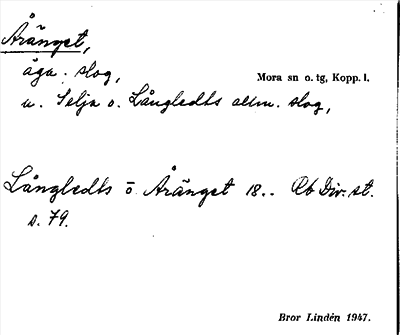 Åränget,
äga. slog,
Mora sn o. tg, Kopp. l.
u. Selja o. Långledts allm. slog,
Långledts ö. Åränget 18.. Rb Div. st.
s. 79.
Bror Lindén 1947.